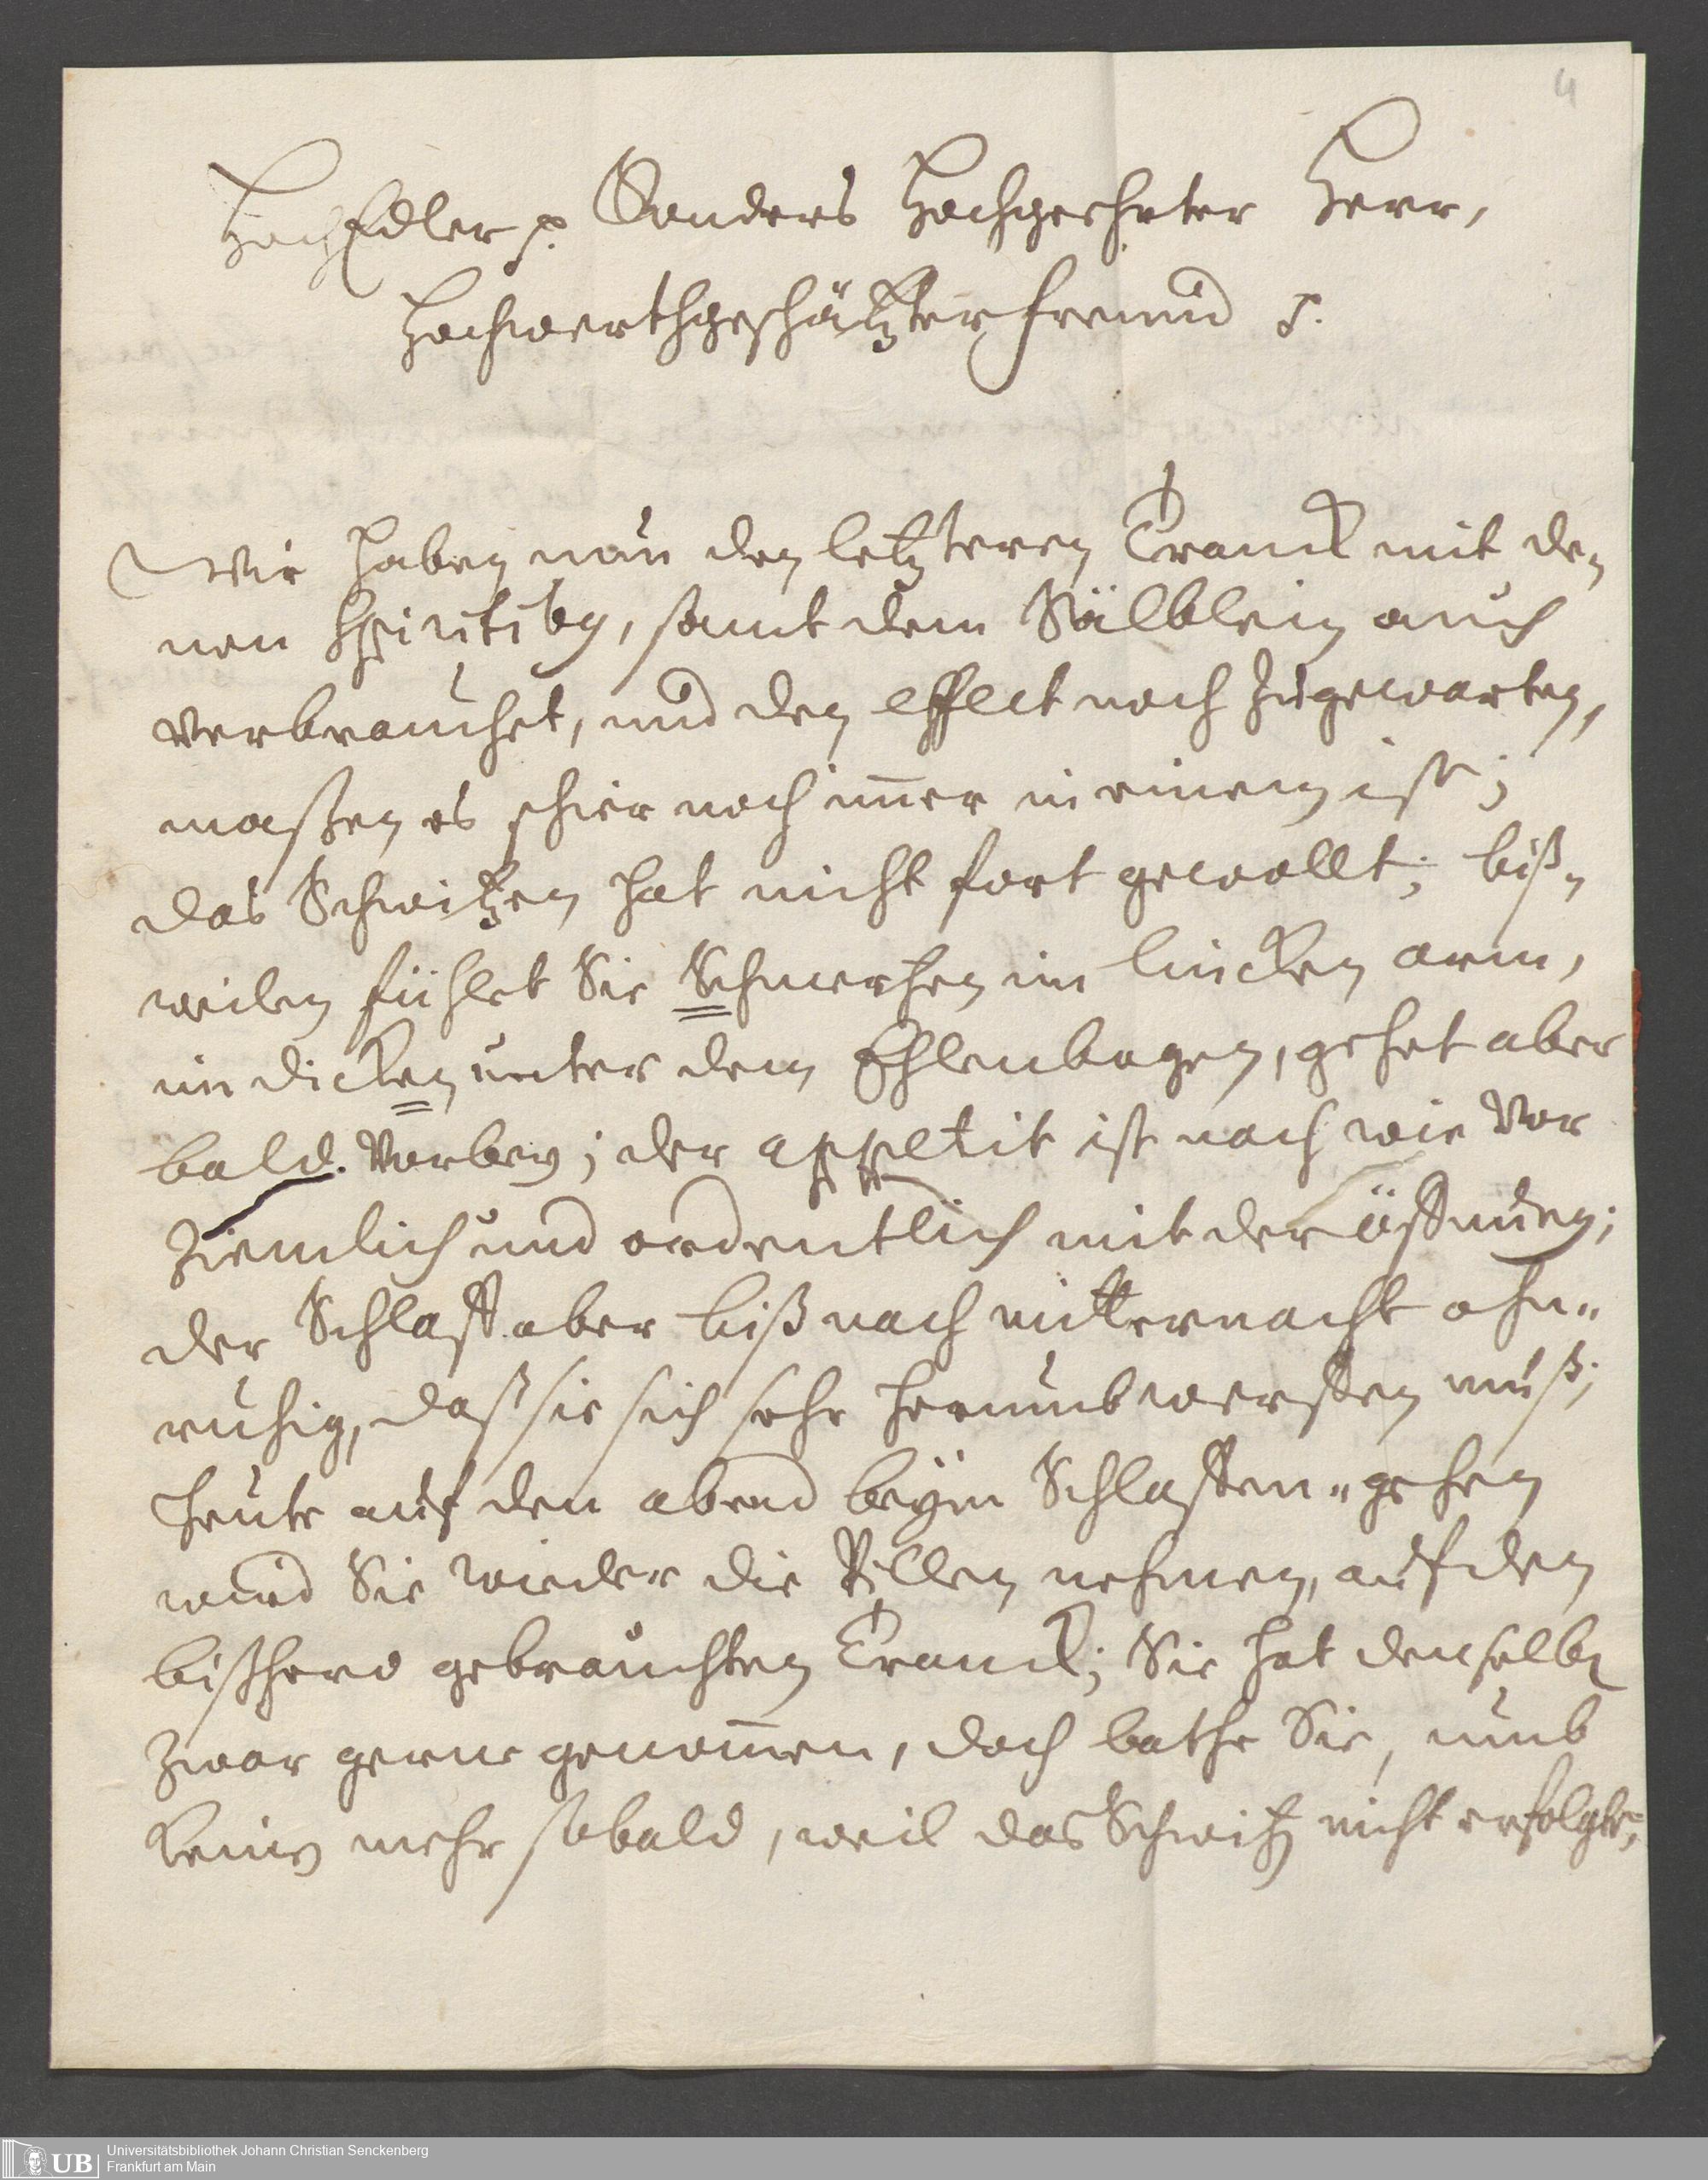 4
HochEdler p. Sonders Hochgeehrter Herr,
Hochwerthgeschätzter freund p.
Wir haben nun den letzteren Tranck mit de¬
nen Spiritibg, samt dem Sälblein auch
verbrauchet, und den effect noch zugewarten,
maßen es schier noch im̅er in einem ist;
das Schwitzen hat nicht fort gewollt; biß¬
weilen fühlet Sie Schmerzen im lincken arm,
im dicken unter dem Ehlenbogen, gehet aber
bald vorbey; der appetit ist nach wie vor
ziemlich und ordentlich mit der öffnung;
der Schlaff aber biß nach mitternacht ohn„
ruhig, daß sie sich sehr herumb werffen muß;
heute auf den abend beym Schlaffen„gehen
wird Sie wieder die Pillen nehmen, auf den
bißhero gebrauchten Tranck; Sie hat denselbn
zwar gerne genom̅en, doch bathe Sie, umb
keinen mehr sobald, weil das Schwitzn nicht erfolgte;
UB
Universitätsbibliothek Johann Christian Senckenberg
Frankfurt am Main